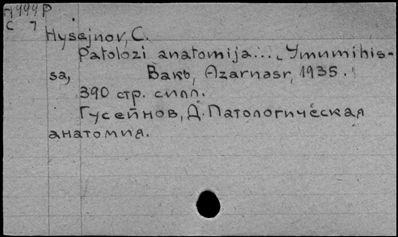 C 7
Hysejnov, C.
Patolozi anatomija... Ymumi his-
sa, Вакь, Azərnəşr, 1935.
390 стр. силл.
Гусейнов, Д. Патологическая
анатомия.